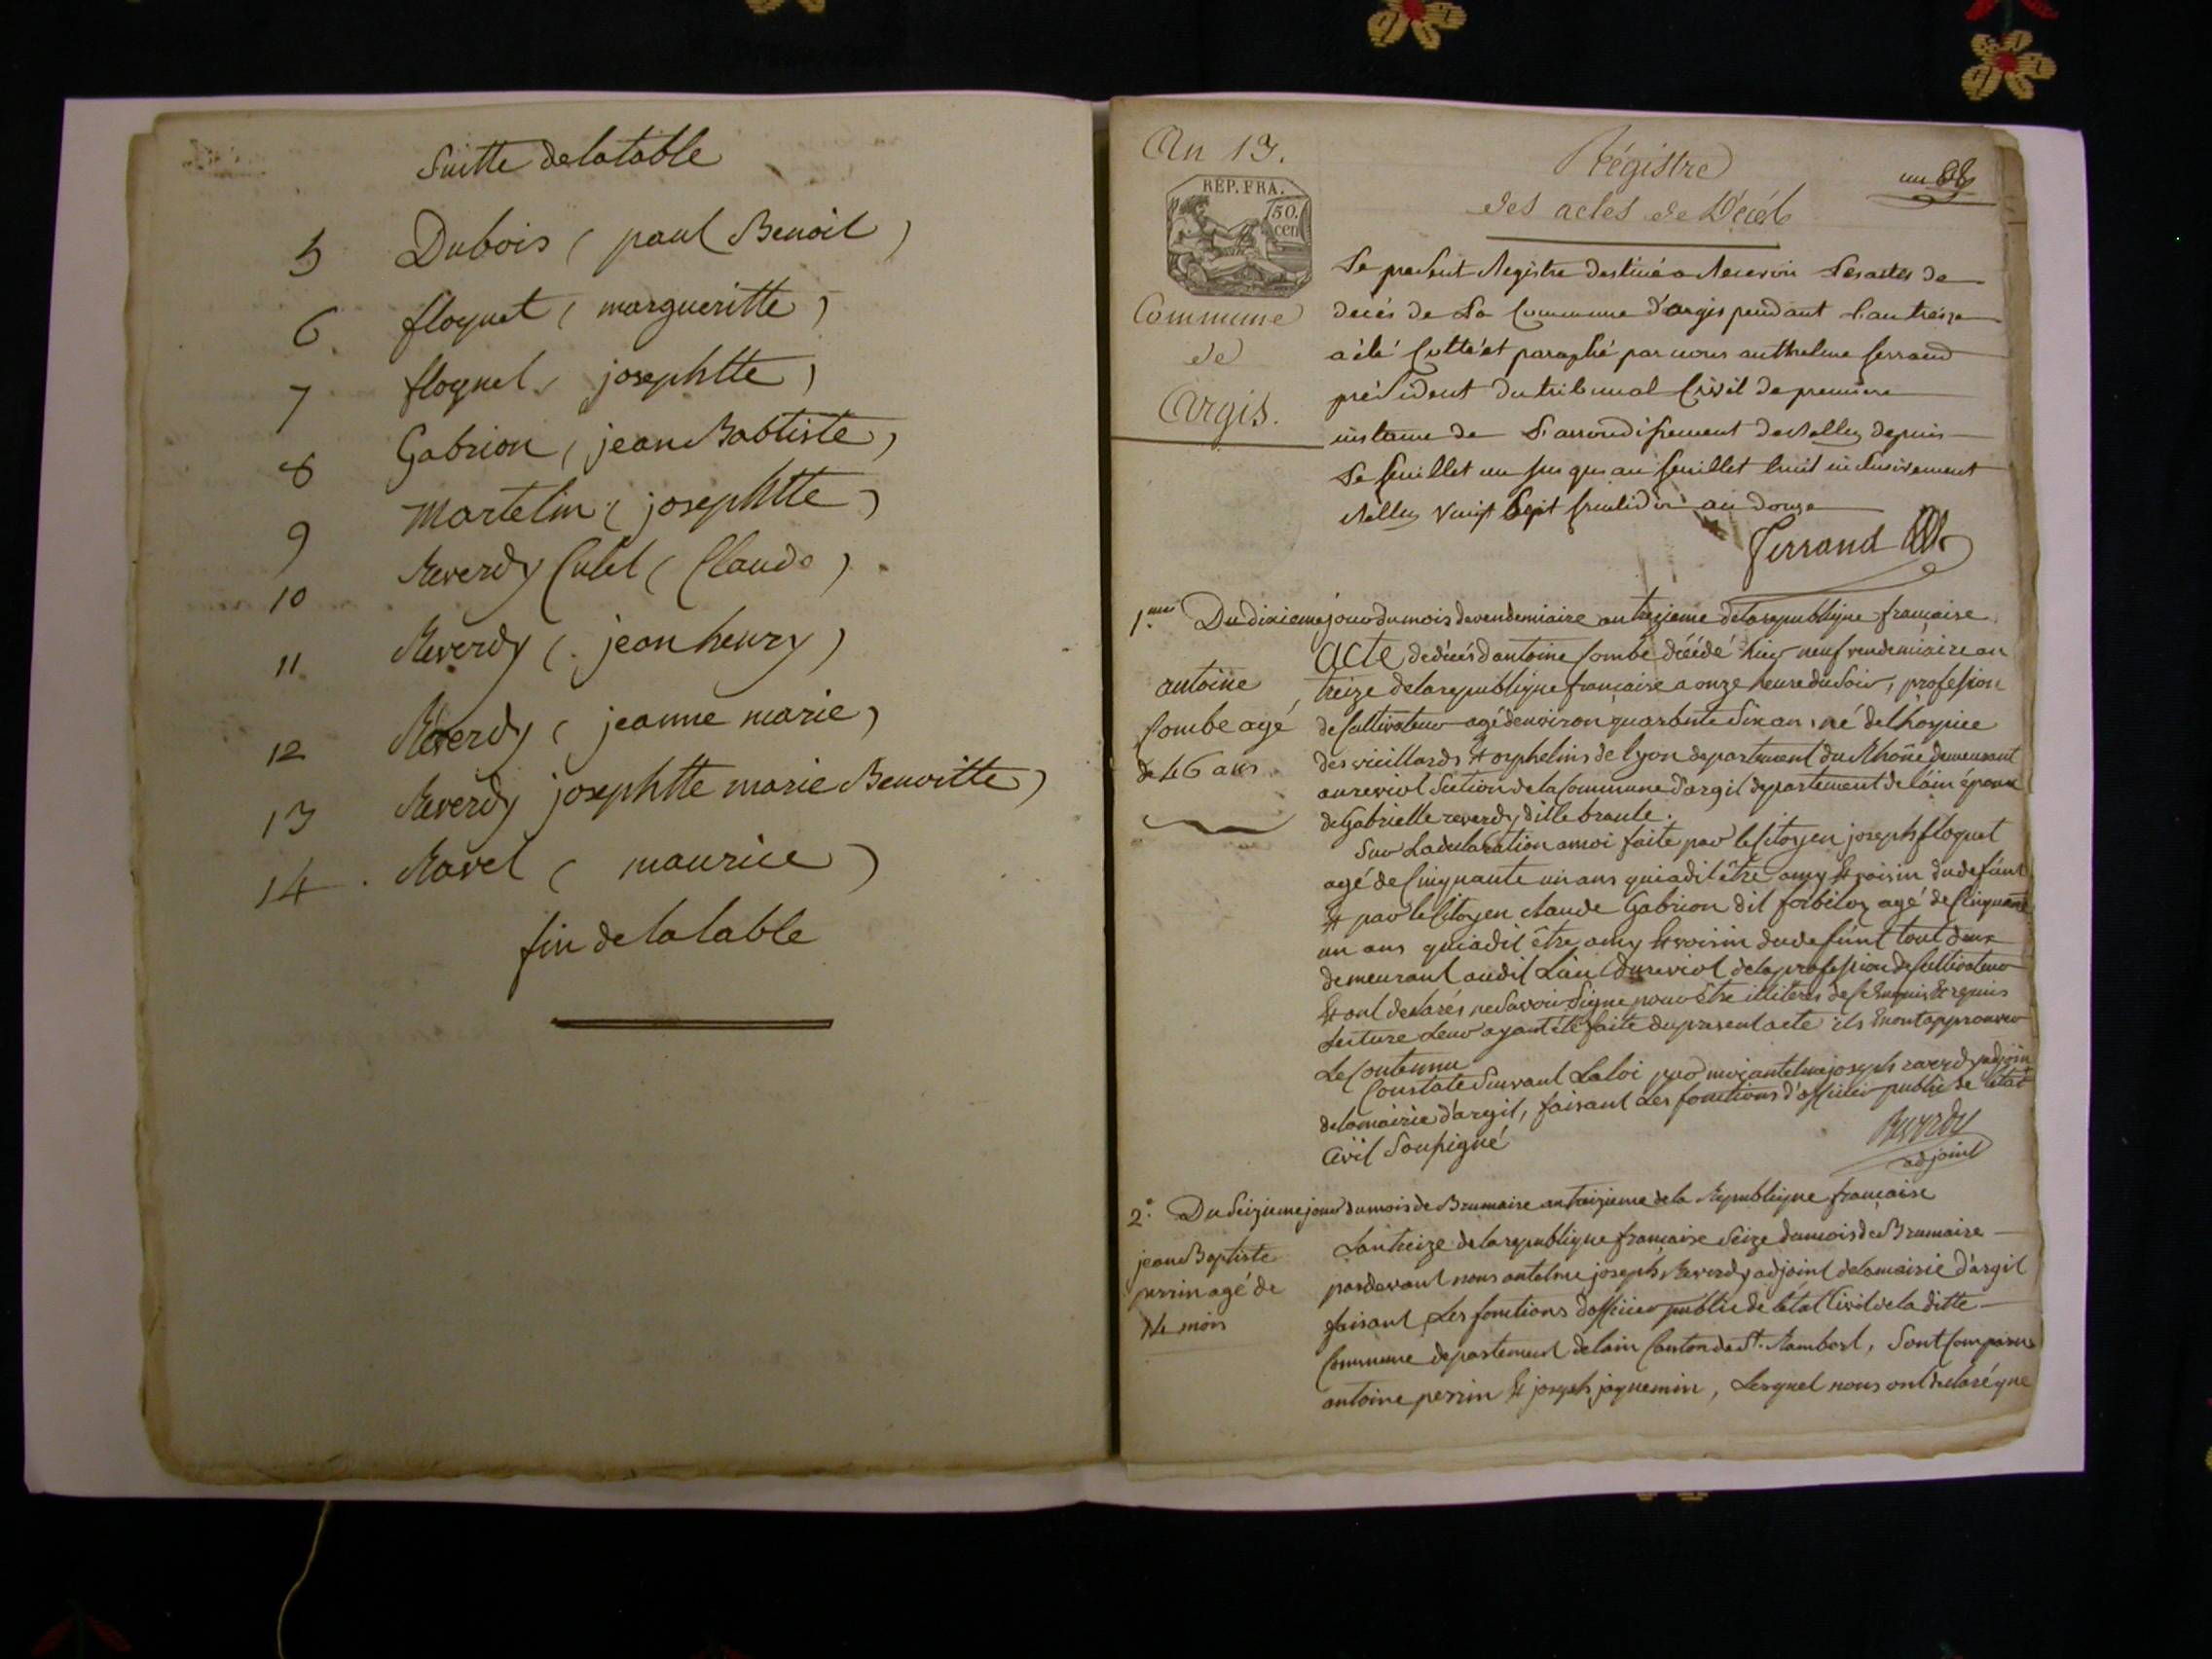 Suitte de la table
5 Dubois ( paul Benoit )
6 floquet ( margueritte )
7 floquet ( josephtte )
8 Gabrion ( jean Babtiste )
9 Martelin ( josephtte )
10 Reverdy Culet ( Claude )
11 Reverdy ( jean henry )
12 Reverdy ( jeanne marie )
13 Reverdy josephtte marie Benoitte )
14 Ravel ( maurice )
fin de la table
An 13.
REP. FRA.
50. cen
Commune
de
Argis.
Régistre
des actes de Décéb
un
Le present Registre destiné a Recevoir Les actes de
decés de La Commune d'argis pendant L'an treize
a été Cotté et paraphé par nous anthelme ferrand
président du tribunal Civil de premiere
instance de L'arrondissement de Belley depuis
Le feuillet un jusqu'au feuillet huit inclusivement
Belley vingt Sept fructidor an douze
Ferrand
1.me Du dixieme jour du mois de vendemiaire an treizieme de la republique francaise
antoine
Combe agé
de 46 ans
acte de décés d'antoine Combe décédé hier neuf vendemiaire an
treize de la republique francaise a onze heure du Soir, profession
de Cultivateur agé d'environ quarante Six ans, né de l'hospice
des vieillards & orphelins de lyon departement du Rhône demeurant
au reviol Section de la Commune d'argit departement de l'ain époux
de Gabrielle reverdy ditte braute.
Sur La declaration a moi faite par le Citoyen joseph floquet
agé de Cinquante un ans qui a dit être amy & voisin du defunt
& par le Citoyen claude Gabrion dit agé de Cinquante
un ans qui a dit être amy & voisin du defunt tout deux
demeurant audit Lieu du reviol de la profession de Cultivateur
& ont declarés ne Savoir Signe pour être illiterés de ce enquis & requis
Lecture Leur ayant été faite du present acte ils en ont approuver
Le Contennu
Constaté Suivant La loi par moi antelme joseph reverdy adjoin
de la mairie d'argit, faisant Les fonctions d'officier public de l'état
Civil Soussigné
Reverdy
adjoint
2.e Du Seizieme jour du mois de Brumaire an treizieme de la Republique francaise
jean Baptiste
perrin agé de
mois
L'an treize de la republique francaise Seize du mois de Brumaire
pardevant nous antelme joseph Reverdy adjoint de la mairie d'argit
faisant Les fonctions d'officier public de l'état Civil de la ditte
Commune departement de l'ain Canton de St. Rambert, Sont Comparus
antoine perrin & joseph jaquemin, Lesquel nous ont declaré que